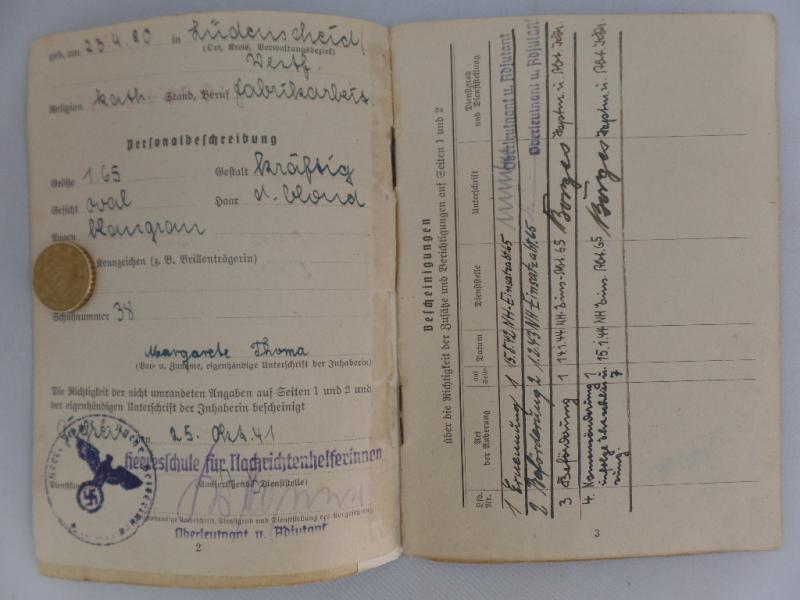 geb. am 23.4.20 in Lüdenscheid/
(Ort, Kreis, Verwaltungsbezirk)
Westf.
Religion kath. Stand, Beruf Fabrikarbeit.
Personalbeschreibung
Größe 1.65 Gestalt kräftig
Gesicht oval Haar d. blond
Augen blaugrau
Kennzeichen (z. B. Brillenträgerin)
Schuhnummer 38
Margarete Thoma
(Vor- u. Zuname, eigenhändige Unterschrift der Inhaberin)
Die Richtigkeit der nicht umrandeten Angaben auf Seiten 1 und 2 und
der eigenhändigen Unterschrift der Inhaberin bescheinigt
25. Okt. 41
Heeresschule für Nachrichtenhelferinnen
(Ausfertigende Dienststelle)
Oberleutnant u. Adjutant
2
Bescheinigungen
über die Richtigkeit der Zusätze und Berichtigungen auf Seiten 1 und 2
Lfd. Nr. Art der Änderung auf Seite Datum Dienststelle Unterschrift Dienstgrad und Dienststellung
1 Ernennung 1 15.5.42 NH-Einsatzabt. 65 Oberleutnant u. Adjutant
2 Beförderung 2 1.2.43 NH-Einsatzabt. 65 Oberleutnant u. Adjutant
3 Beförderung 1 14.1.44 NH-Eins.-Abt. 65 Borges Hauptm. u. Abt. Kdr.
4. 1 15.1.44 NH Eins. Abt. 65 Borges Hauptm. u. Abt. Kdr.
7
3